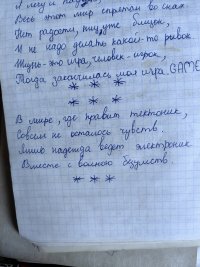 Весь этот мир спрятан во снах
Нет радости, ищу уже
И не надо делать какой-то рывок.
Жизнь-то игра, человек-игрок,
Тогда закончилась моя игра. GAME
* * *
* * *
В мире, где правит тектоник,
Совсем не осталось чувств.
Лишь надежда ведет электроник
Вместе с волною безумств.
* * *